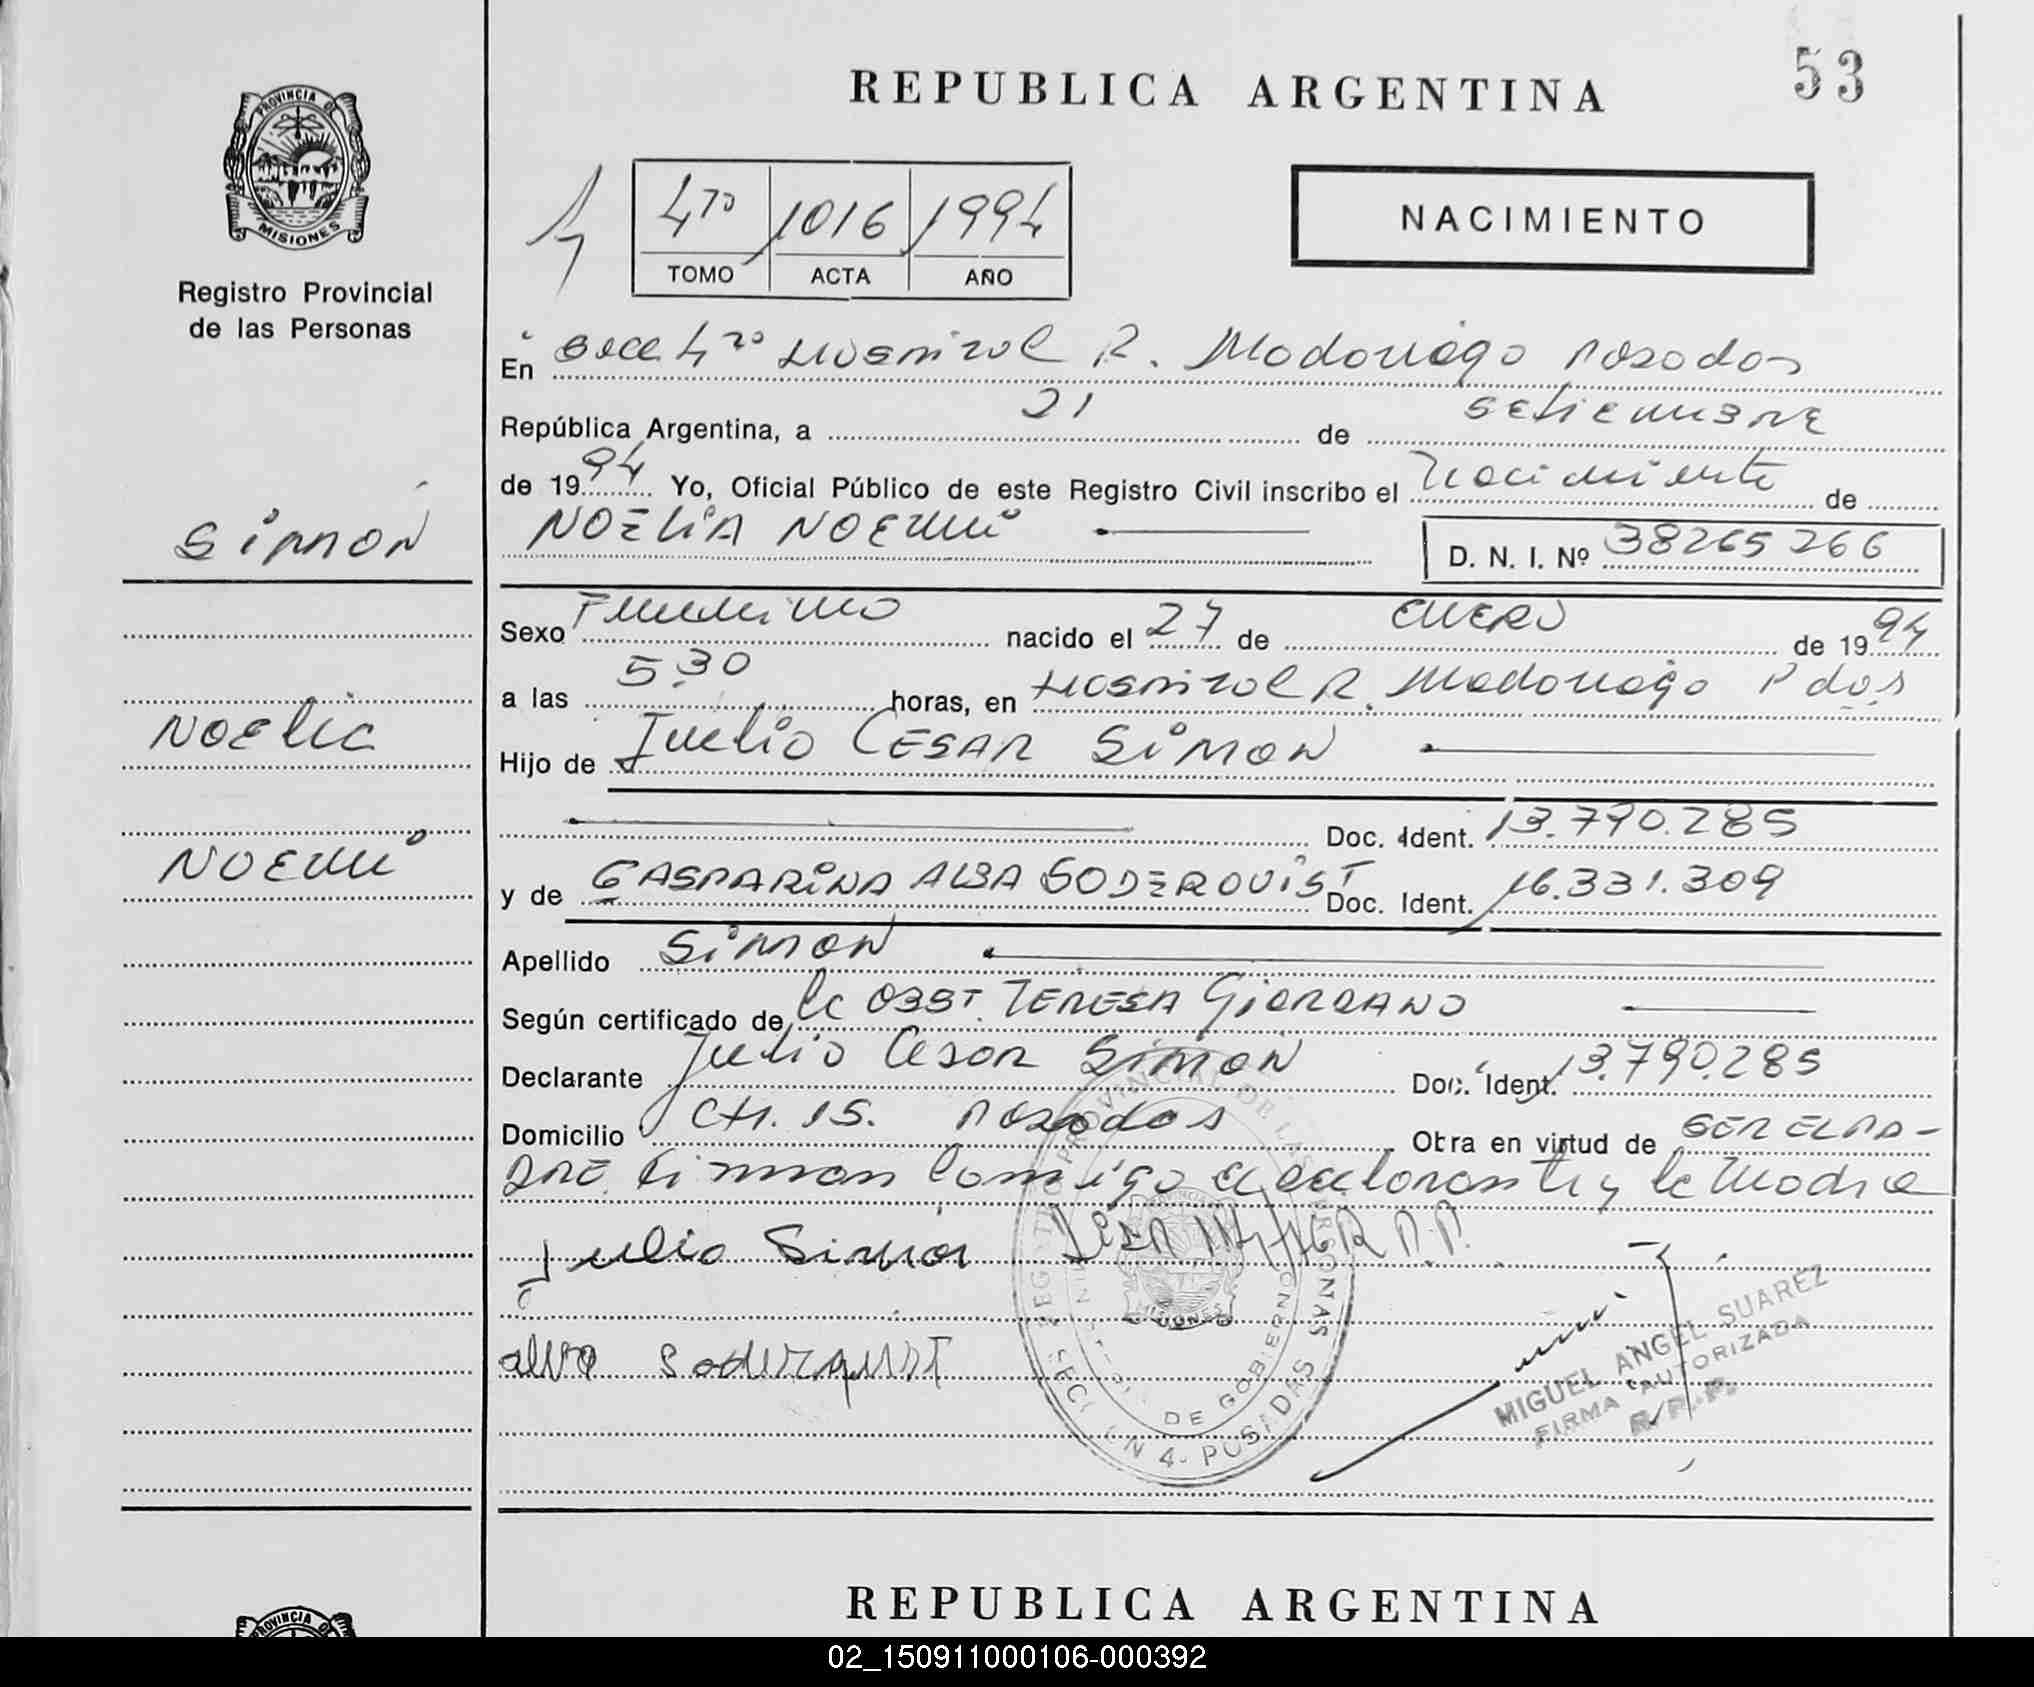 REPUBLICA ARGENTINA
53
PROVINCIA DE
MISIONES
Registro Provincial
de las Personas
4to 1016 1994
TOMO ACTA AÑO
NACIMIENTO
En Secc 4ta Hospital R. Madariaga Posadas
República Argentina, a 21 de Setiembre
de 1994 Yo, Oficial Público de este Registro Civil inscribo el Nacimiento de
NOELIA NOEMI D. N. I. Nº 38265266
SIMON
Sexo Femenino nacido el 27 de ENERO de 1994
a las 5,30 horas, en Hospital R. Madariaga Pdas
NOELIA
Hijo de Julio CESAR SIMON
Doc. Ident. 13.790.285
NOEMI
y de GASPARINA ALBA SODERQUIST Doc. Ident. 16.331.309
Apellido SIMON
Según certificado de la OBST. TERESA GIORDANO
Declarante Julio Cesar SIMON Doc. Ident. 13.790.285
Domicilio CH. 15. Posadas Obra en virtud de SER EL PA-
DRE. Firman Conmigo el declarante y la Madre
Julio Simón
alva Soderquist
REGISTRO PROVINCIAL DE LAS PERSONAS
DE GOBIERNO
SECCION 4. POSADAS
MISIONES
MIGUEL ANGEL SUAREZ
FIRMA AUTORIZADA
R.P.P.
REPUBLICA ARGENTINA
PROVINCIA DE
02_150911000106-000392